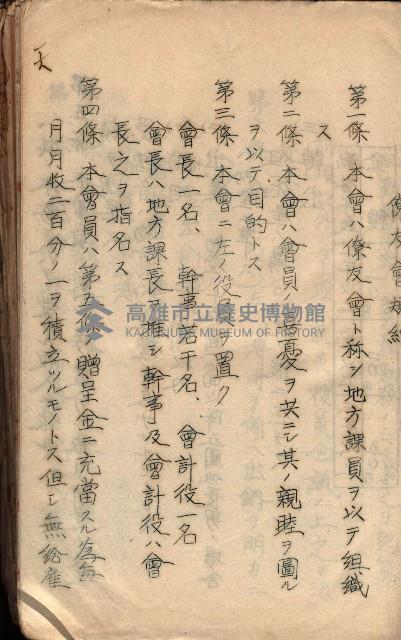 僚友會規約
第一條 本會ハ僚友會ト称シ地方課員ヲ以テ組織
ス
第二條 本會ハ會員ノ喜憂ヲ共ニシ其ノ親睦ヲ圖ル
ヲ以テ目的トス
第三條 本會ニ左ノ役員ヲ置ク
會長一名、 幹事若干名、 會計役一名
會長ハ地方課長ヲ推シ幹事及會計役ハ會
長之ヲ指名ス
第四條 本會員ハ第五條ノ贈呈金ニ充當スル為毎
月月收二百分ノ一ヲ積立ツルモノトス但シ無給雇
高雄市立歷史博物館
KAOHSIUNG MUSEUM OF HISTORY